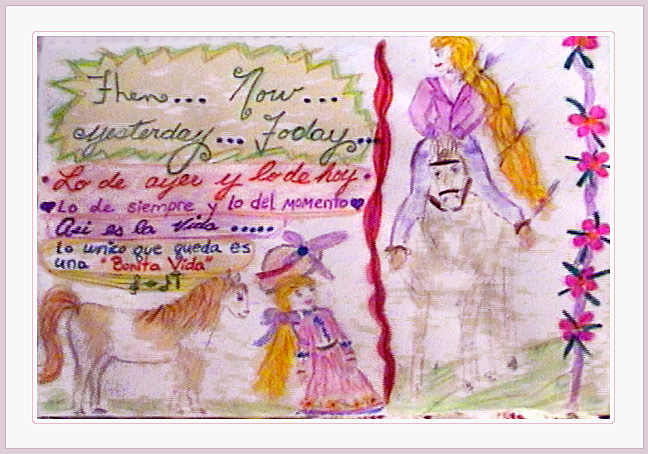 Then... Now...
yesterday... Today...
Lo de ayer y lo de hoy.
Lo de siempre y lo del momento
Asi es la Vida .....
Lo unico que queda es
una "Bonita Vida"